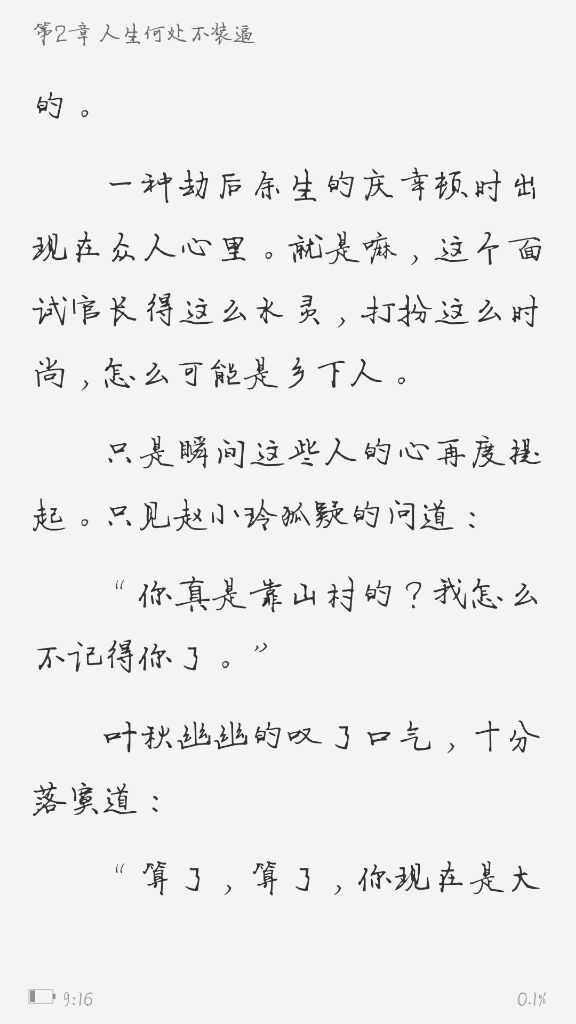 第2章 人生何处不装逼
的。
一种劫后余生的庆幸顿时出
现在众人心里。就是嘛，这个面
试官长得这么水灵，打扮这么时
尚，怎么可能是乡下人。
只是瞬间这些人的心再度提
起。只见赵小玲狐疑的问道：
“你真是靠山村的？我怎么
不记得你了。”
叶秋幽幽的叹了口气，十分
落寞道：
“算了，算了，你现在是大
9:16
0.1%